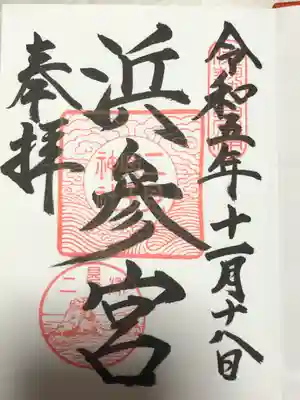 令和五年十一月十八日
浜參宮
奉拝
二
神